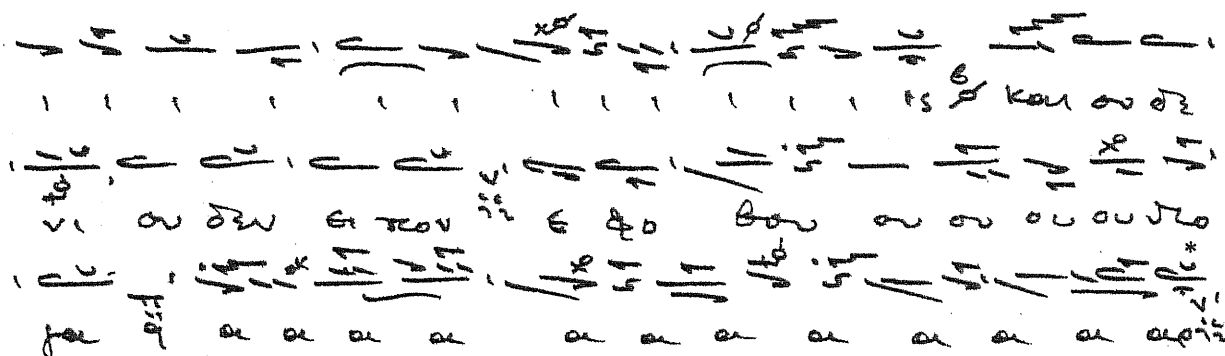 ι ι ι ι ι ι ι ι ι ι ι ι ις και ου δε
νι ου δεν ει πον ε φο βου ου ου ου ου ντο
γα α α α α α α α α α α α αρ